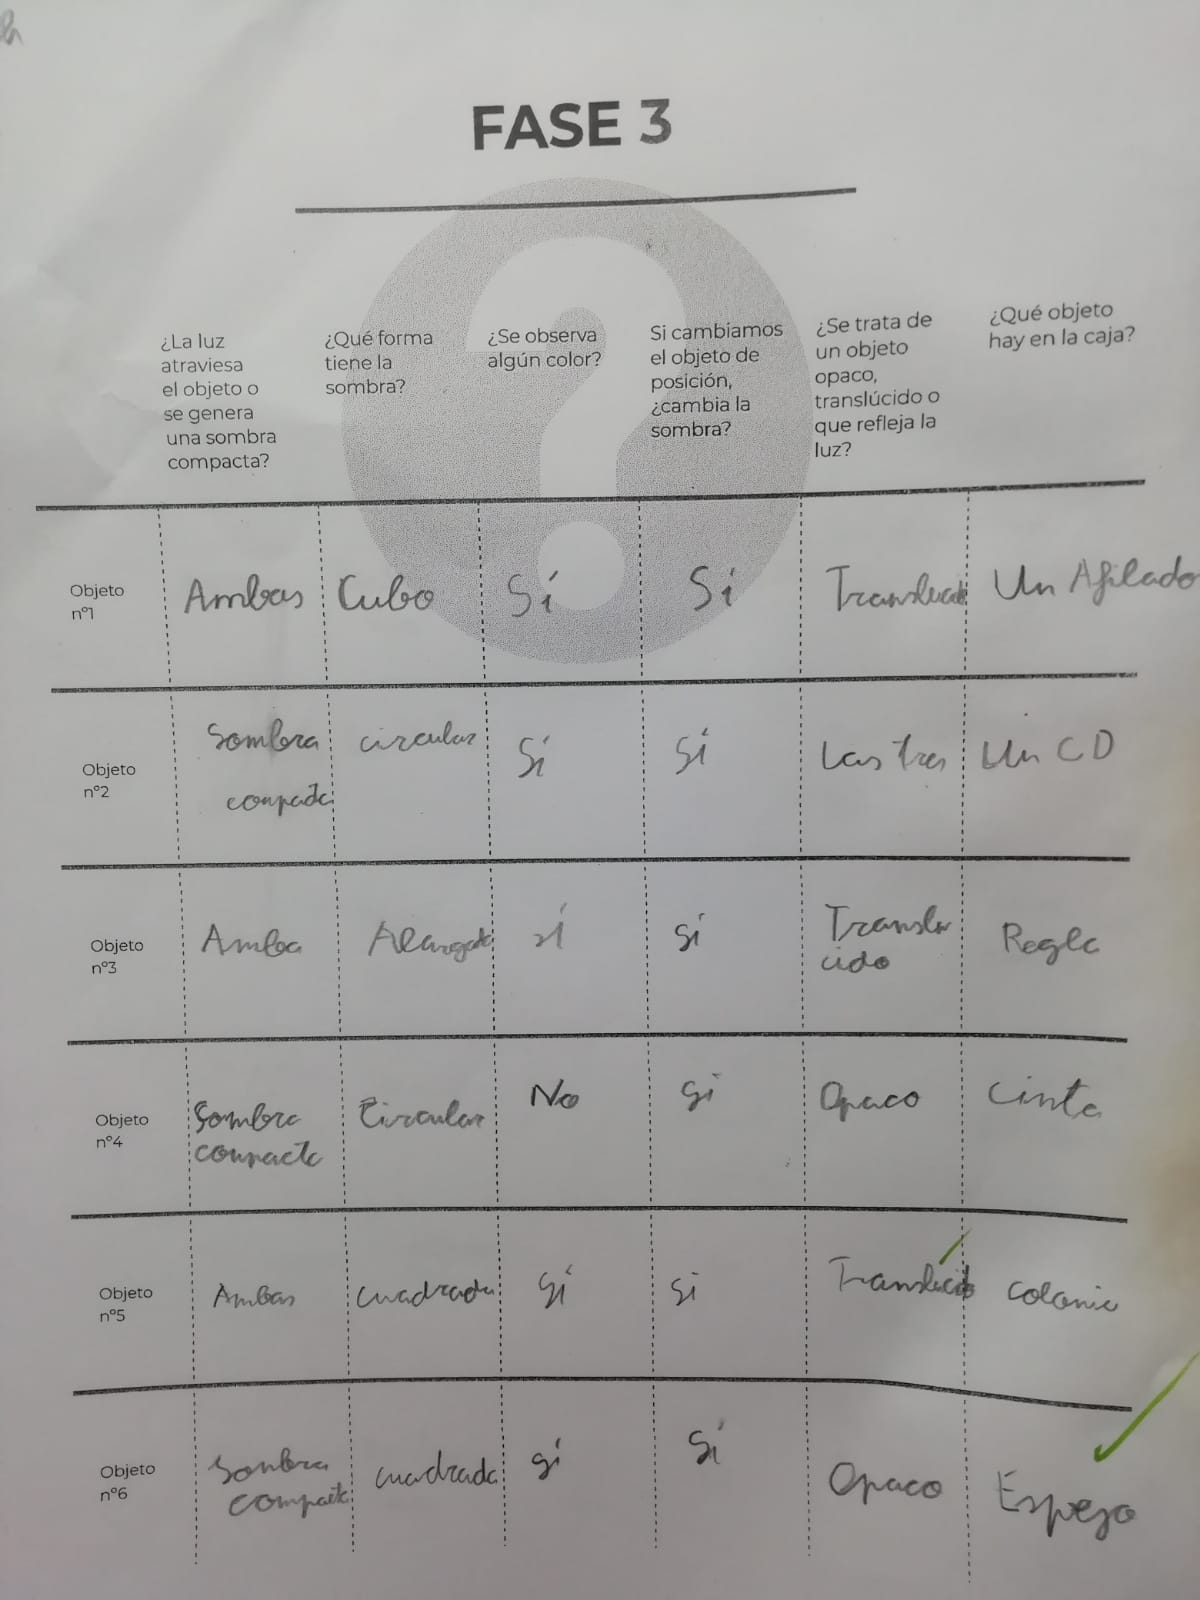 FASE 3
¿La luz
atraviesa
el objeto o
se genera
una sombra
compacta?
¿Qué forma
tiene la
sombra?
¿Se observa
algún color?
Si cambiamos
el objeto de
posición,
¿cambia la
sombra?
¿Se trata de
un objeto
opaco,
translúcido o
que refleja la
luz?
¿Qué objeto
hay en la caja?
Objeto
nº1
Ambas
Cubo
Sí
Si
Translucido
Un Afilado
Objeto
nº2
Sombra
compacta
circular
Sí
Sí
Las tres
Un CD
Objeto
nº3
Amba
Alargada
sí
si
Translu
cido
Regla
Objeto
nº4
Sombra
compacta
Circular
No
Si
Opaco
Cinta
Objeto
nº5
Ambas
cuadrada
Sí
si
Translúcido
colonia
Objeto
nº6
Sombra
compacta
cuadrada
sí
Sí
Opaco
Espejo